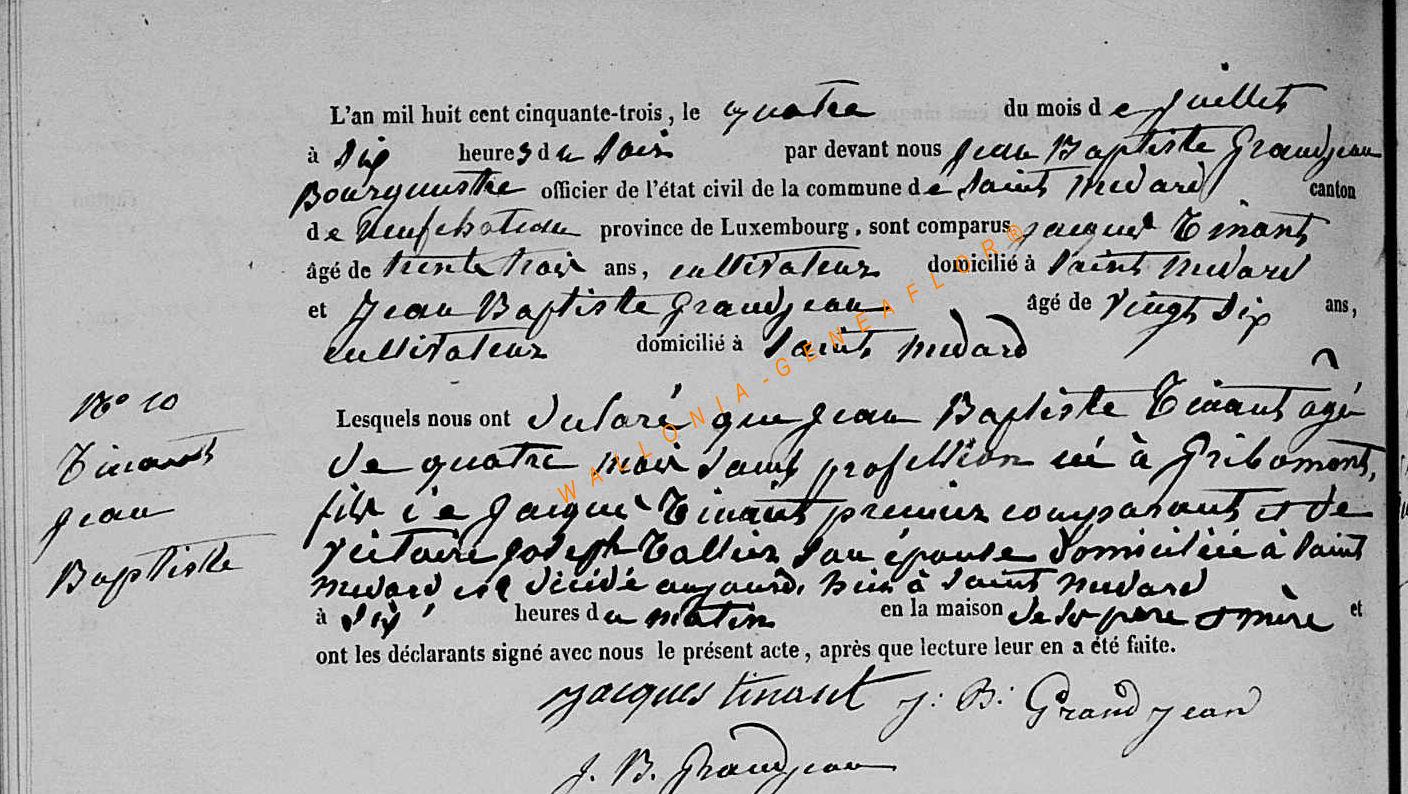 L'an mil huit cent cinquante-trois, le quatre du mois de Juillet
à Six heures du Soir par devant nous Jean Baptiste Grandjean
Bourgmestre officier de l'état civil de la commune de Saint Medard canton
de Neufchateau province de Luxembourg, sont comparus Jacques Tinant
âgé de trente trois ans, cultivateur domicilié à Saint Medard
et Jean Baptiste Grandjean âgé de Vingt Six ans,
cultivateur domicilié à Saint Medard
N° 10
Tinant
Jean
Baptiste
Lesquels nous ont déclaré que Jean Baptiste Tinant âgé
de quatre mois sans profession né à Gribomont,
fils de Jacques Tinant premier comparant et de
Victoire Joseph Tallier Son épouse domiciliée à Saint
Medard est décédé aujourd'hui à Saint Medard
à Six heures du matin en la maison de Ses père et mère et
ont les déclarants signé avec nous le présent acte, après que lecture leur en a été faite.
Jacques tinant J. B. Grandjean
J. B. Grandjean
WALLONIA-GENEAFLOR®